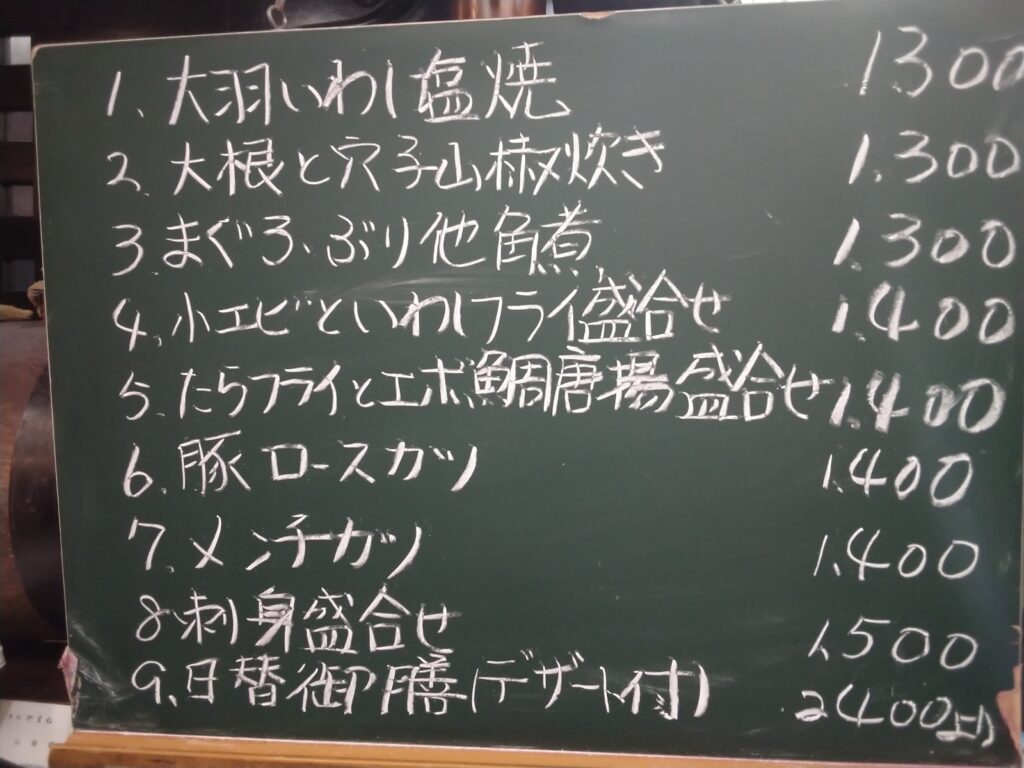 1. 大羽いわし塩焼 1300
2. 大根と穴子山椒炊き 1.300
3. まぐろ、ぶり他角煮 1.300
4. 小エビといわしフライ盛合せ 1.400
5. たらフライとエボ鯛唐場盛合せ 1.400
6. 豚ロースカツ 1.400
7. メンチカツ 1.400
8 刺身盛合せ 1,500
9. 日替御膳(デザート付) 2400より
やまね